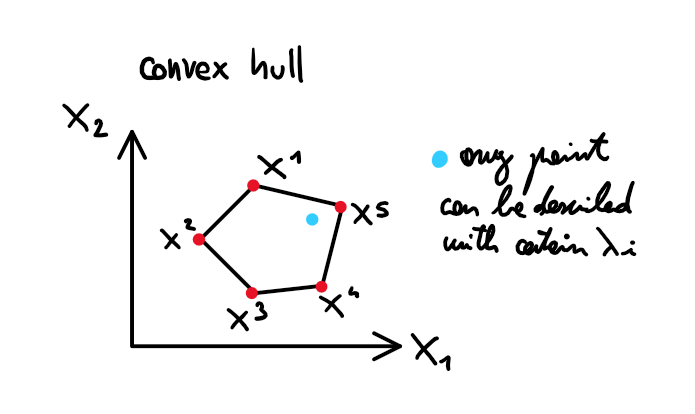 convex hull
X₂
X¹
X⁵
X²
X³
X⁴
X₁
any point
can be described
with certain λᵢ